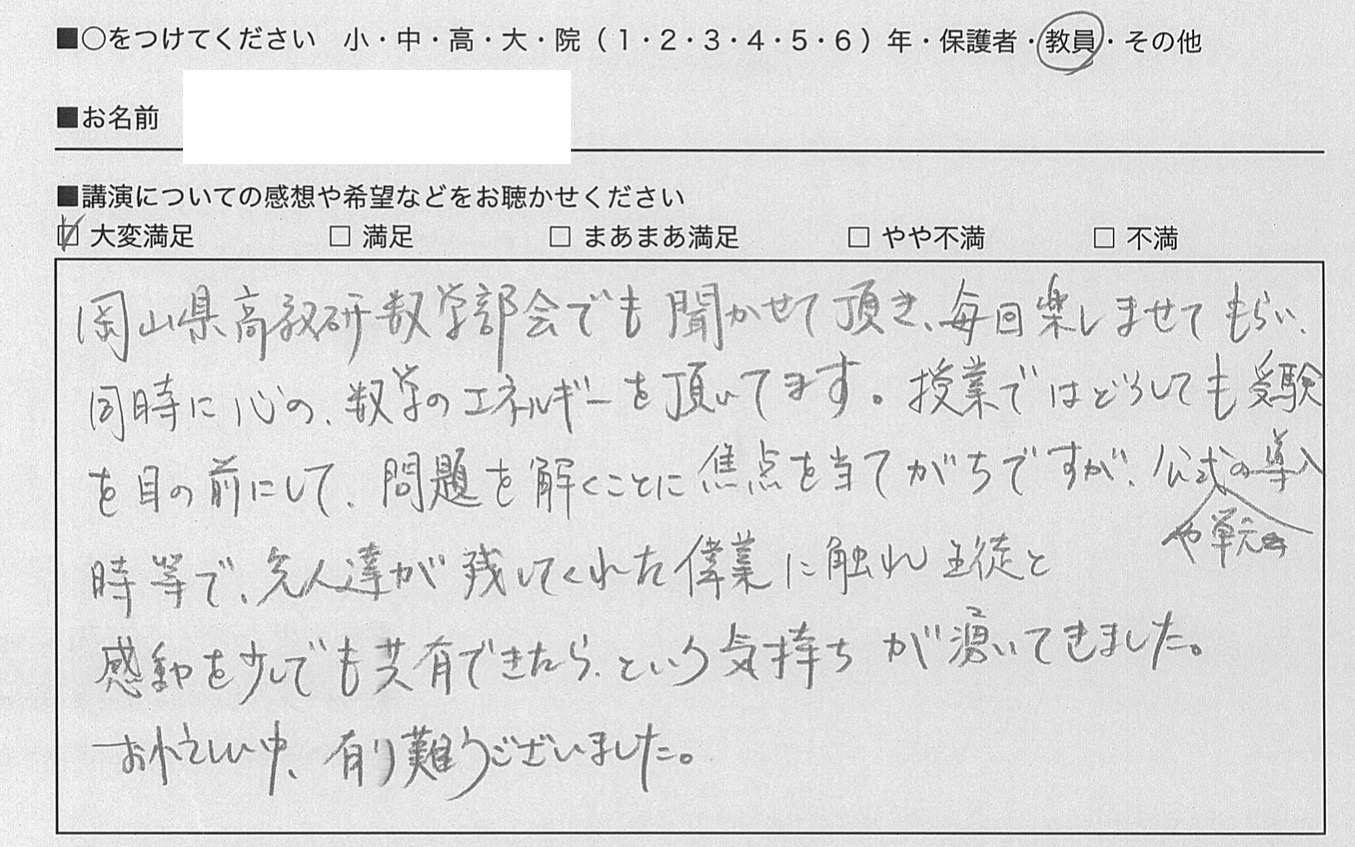 ■○をつけてください 小・中・高・大・院（1・2・3・4・5・6）年・保護者・教員・その他
■お名前
■講演についての感想や希望などをお聴かせください
☑ 大変満足 □ 満足 □ まあまあ満足 □ やや不満 □ 不満
岡山県高教研数学部会でも聞かせて頂き、毎回楽しませてもらい、
同時に心の、数学のエネルギーを頂いてます。授業ではどうしても受験
を目の前にして、問題を解くことに焦点を当てがちですが、公式の導入
や単元
時等で、先人達が残してくれた偉業に触れ生徒と
感動を少しでも共有できたら、という気持ちが湧いてきました。
お忙しい中、有り難うございました。